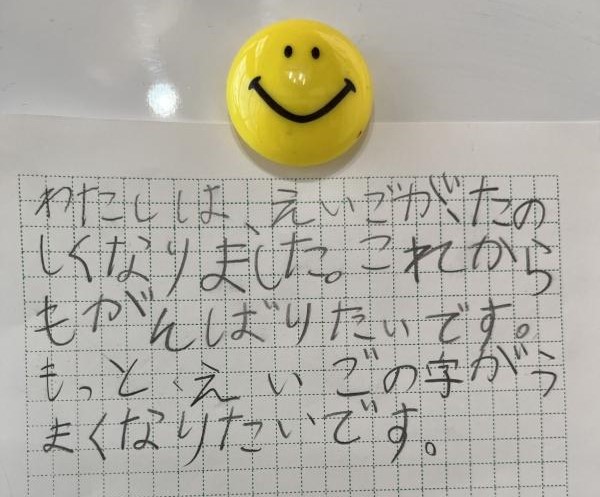 わたしは、えいごがたの
しくなりました。これから
もがんばりたいです。
もっと、えいごの字がう
まくなりたいです。